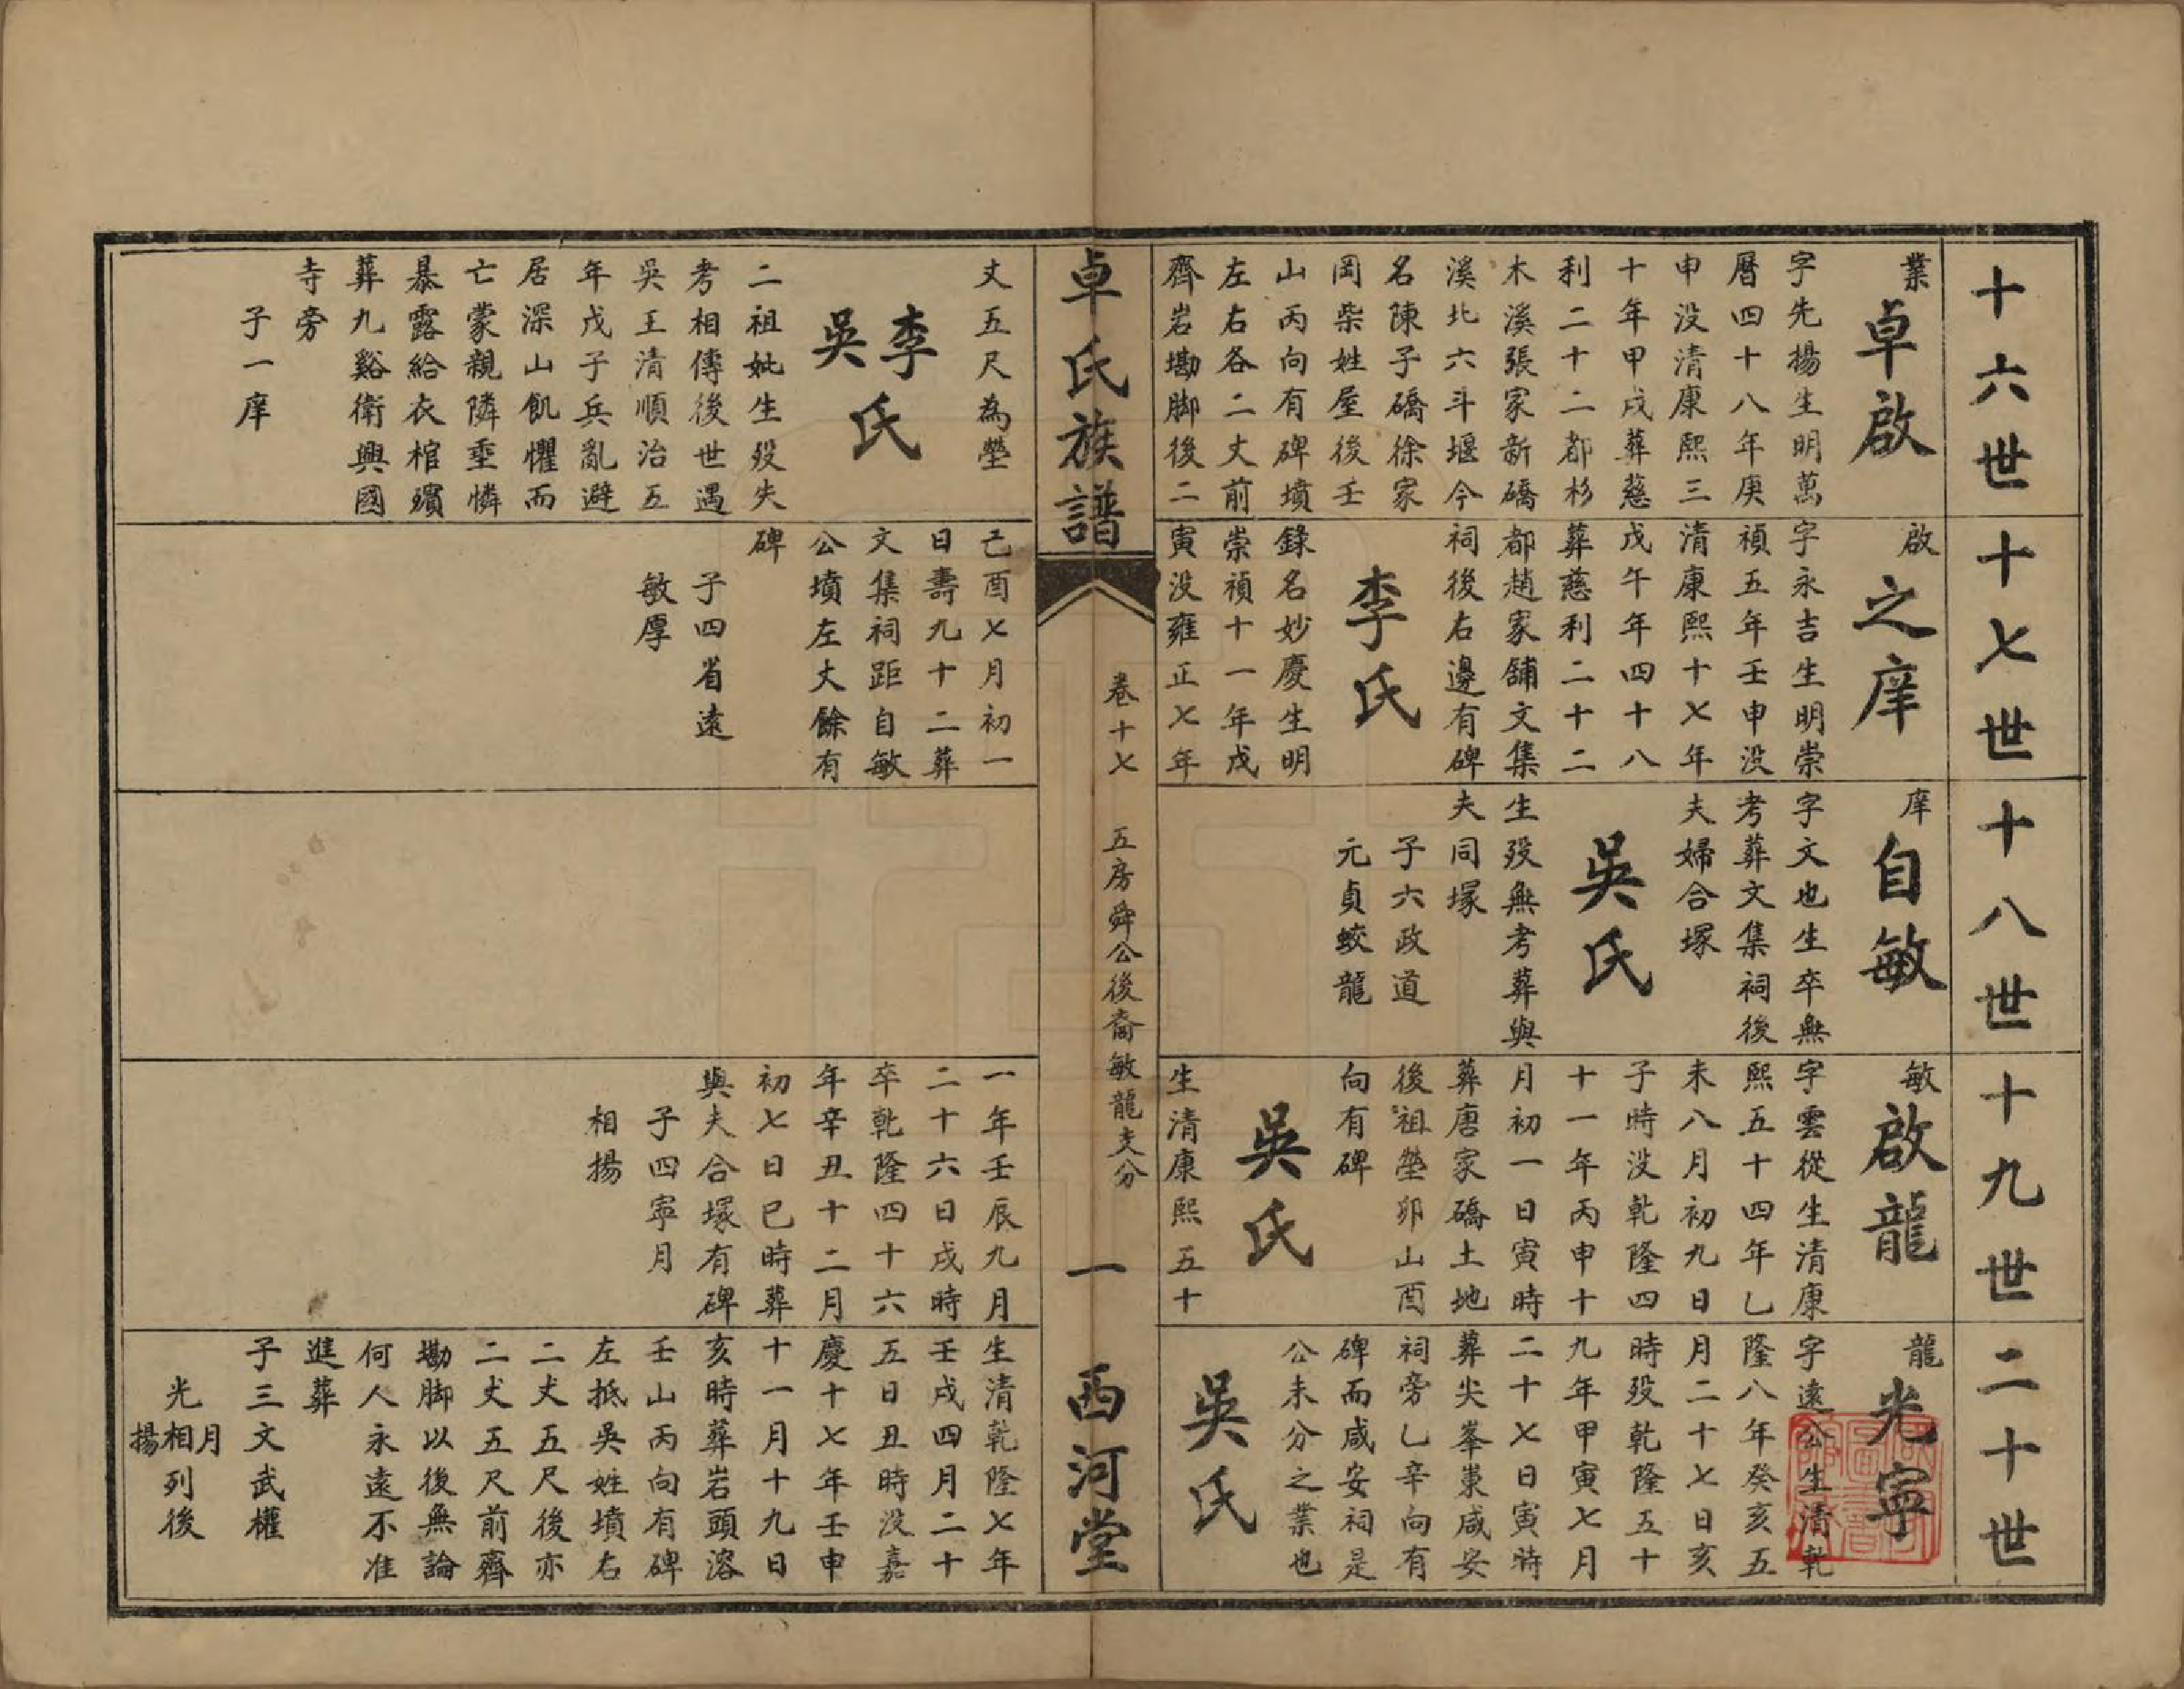 十六世
業
卓啟
字先揚生明萬
曆四十八年庚
申没清康熙三
十年甲戌葬慈
利二十二都杉
木溪張家新礄
溪北六斗堰今
名陳子礄徐家
岡柴姓屋後壬
山丙向有碑墳
左右各二丈前
齊岩墈脚後二
丈五尺為塋
李氏
吳
二祖妣生殁失
考相傳後世遇
吳王清順治五
年戊子兵亂避
居深山飢懼而
亡蒙親隣埀憐
暴露給衣棺殯
葬九谿衛興國
寺旁
子一庠
十七世
啟
之庠
字永吉生明崇
禎五年壬申没
清康熙十七年
戊午年四十八
葬慈利二十二
都趙家舖文集
祠後右邊有碑
李氏
錄名妙慶生明
崇禎十一年戊
寅没雍正七年
己酉七月初一
日壽九十二葬
文集祠距自敏
公墳左丈餘有
碑
子四省遠
敏厚
十八世
庠
自敏
字文也生卒無
考葬文集祠後
夫婦合塚
吳氏
生殁無考葬與
夫同塚
子六政道
元貞蛟龍
十九世
敏
啟龍
字雲從生清康
熙五十四年乙
未八月初九日
子時没乾隆四
十一年丙申十
月初一日寅時
葬唐家礄土地
後祖塋卯山酉
向有碑
吳氏
生清康熙五十
一年壬辰九月
二十六日戌時
卒乾隆四十六
年辛丑十二月
初七日巳時葬
與夫合塚有碑
子四寧月
相揚
二十世
龍
光寧
字遠公生清乾
隆八年癸亥五
月二十七日亥
時殁乾隆五十
九年甲寅七月
二十七日寅時
葬尖峯東咸安
祠旁乙辛向有
碑而咸安祠是
公未分之業也
吳氏
生清乾隆七年
壬戌四月二十
五日丑時没嘉
慶十七年壬申
十一月十九日
亥時葬岩頭溶
壬山丙向有碑
左抵吳姓墳右
二丈五尺後亦
二丈五尺前齊
墈脚以後無論
何人永遠不准
進葬
子三文武權
月
光相列後
揚
卓氏族譜
卷十七
五房舜公後裔敏龍支分
一
西河堂